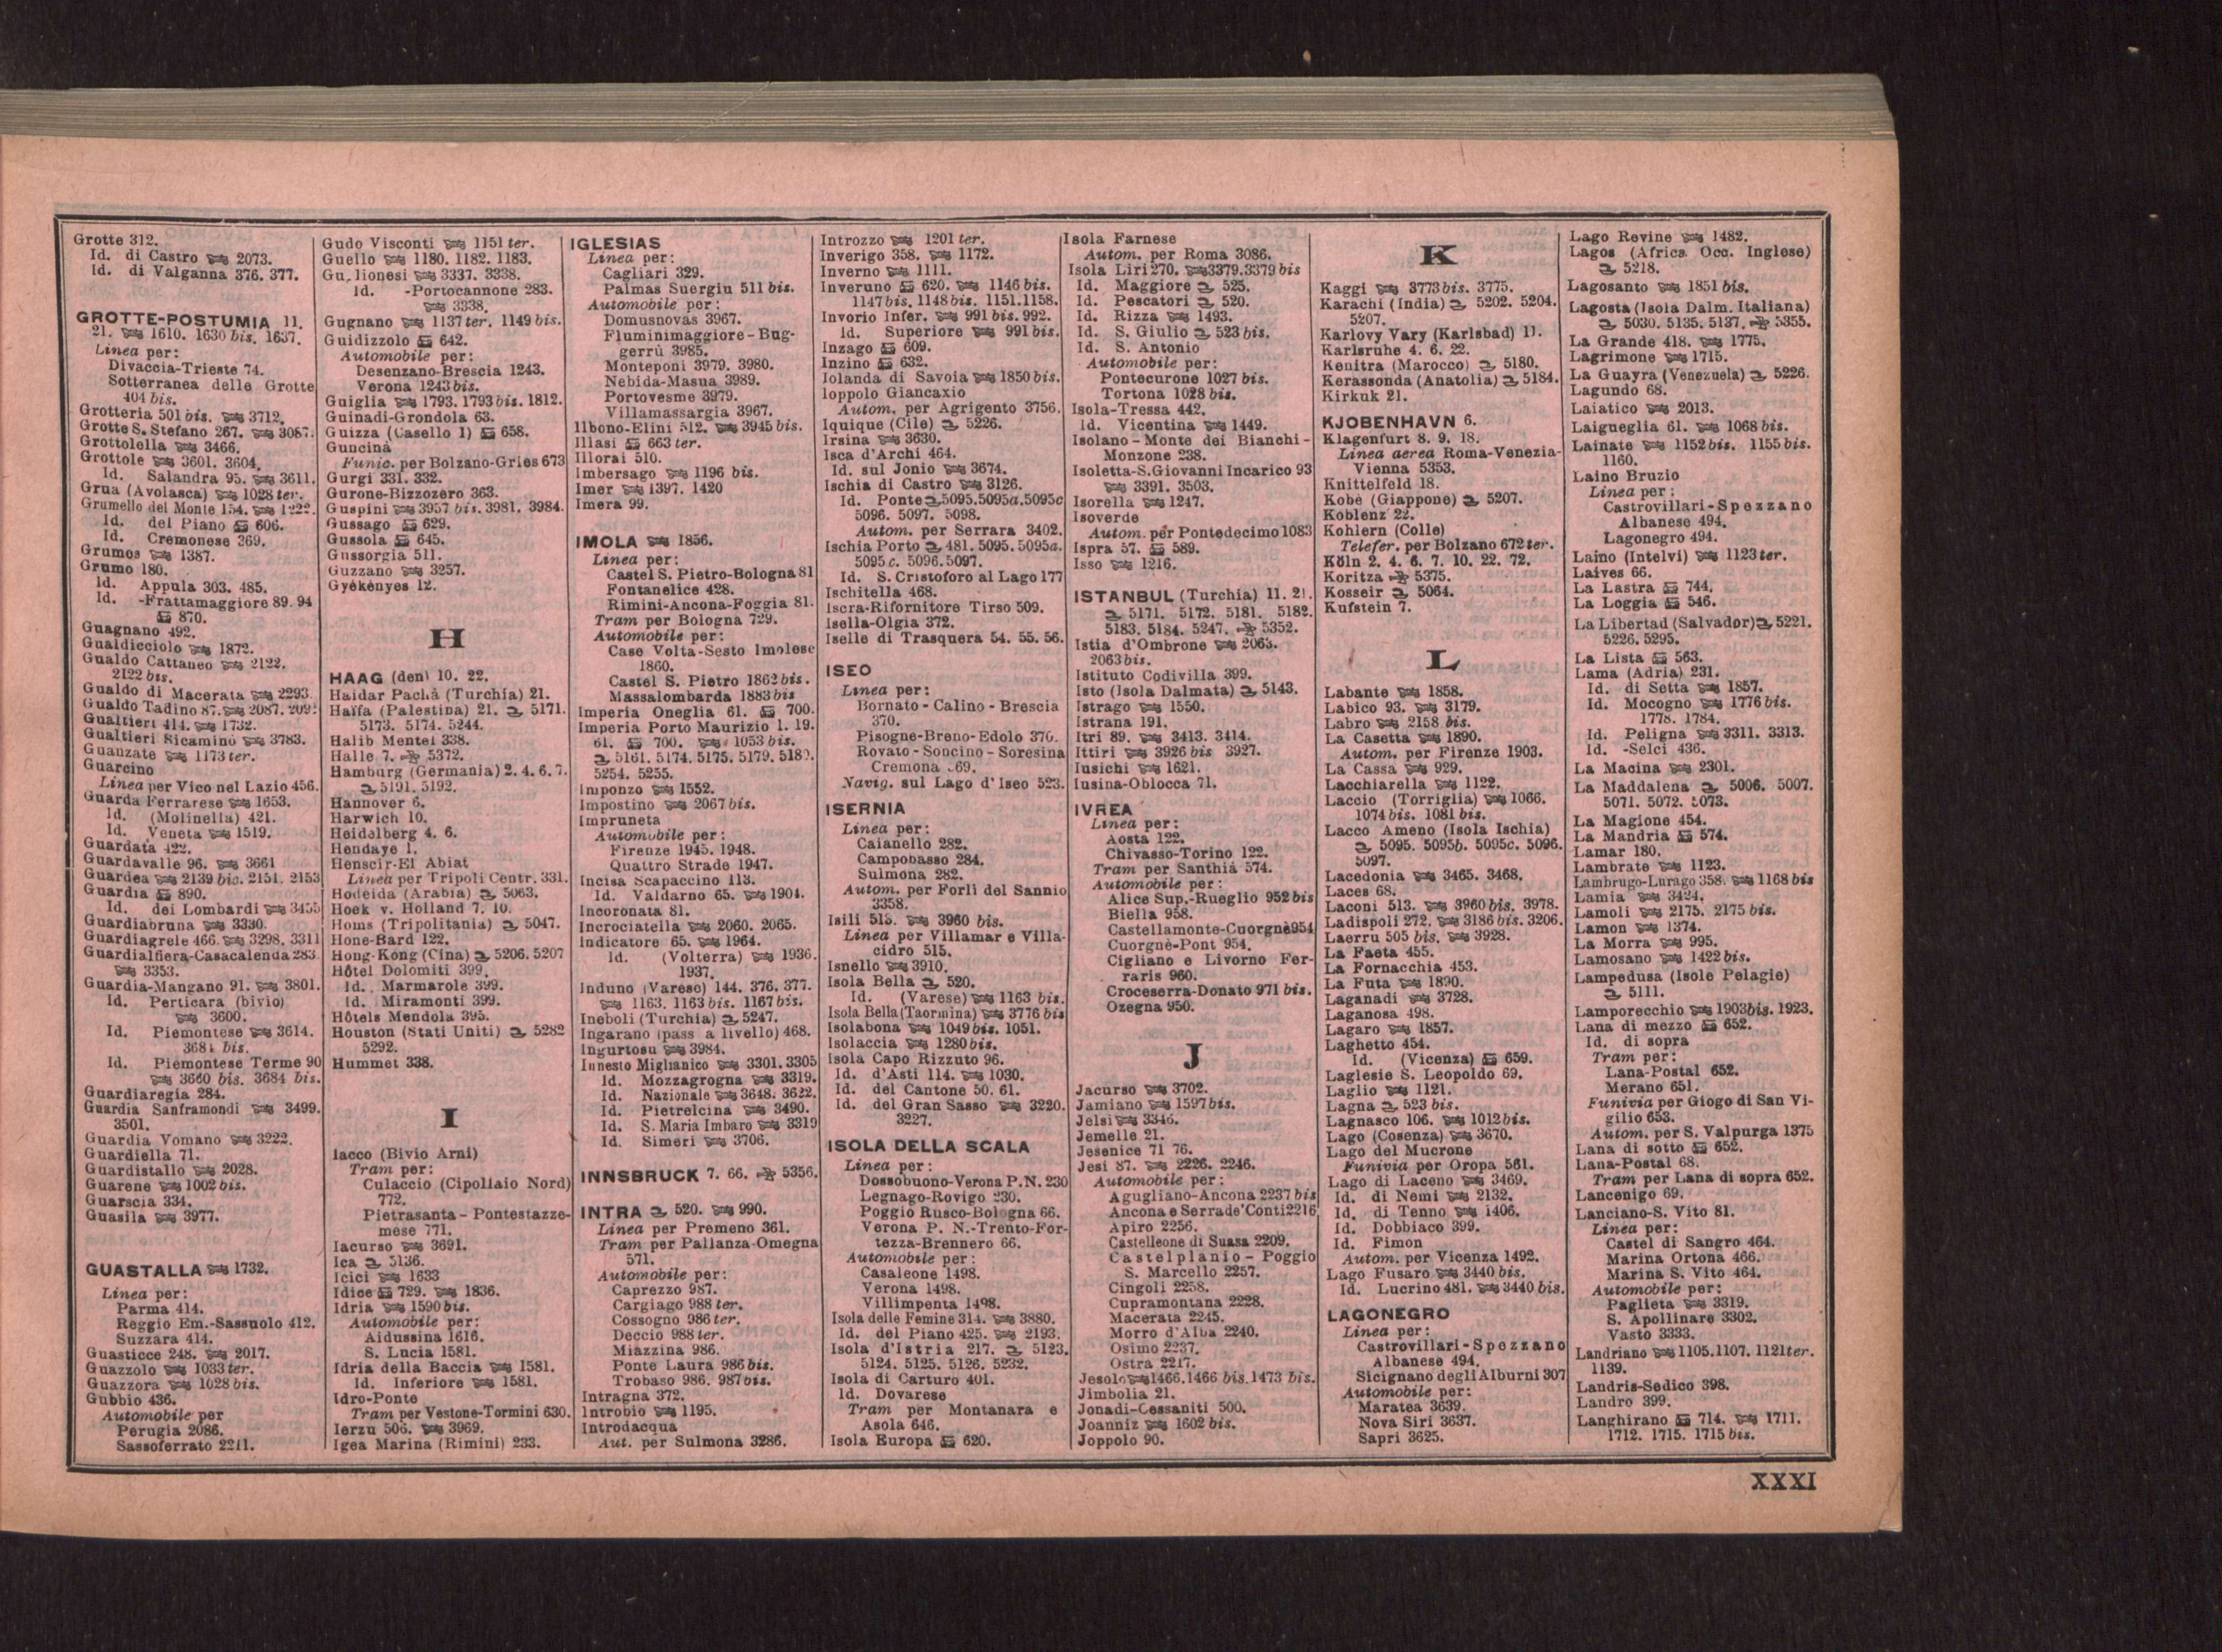 Grotte 312.
Id. di Castro 2073.
Id. di Valganna 376. 377.
GROTTE-POSTUMIA 11.
21. 1610. 1630 bis. 1637.
Linea per:
Divaccia-Trieste 74.
Sotterranea delle Grotte
404 bis.
Grotteria 501 bis. 3712.
Grotte S. Stefano 267. 3087.
Grottolella 3466.
Grottole 3601. 3604.
Id. Salandra 95. 3611.
Grua (Avolasca) 1028 ter.
Grumello del Monte 154. 1222.
Id. del Piano 606.
Id. Cremonese 369.
Grumos 1387.
Grumo 180.
Id. Appula 303. 485.
Id. -Frattamaggiore 89. 94
870.
Guagnano 492.
Gualdicciolo 1872.
Gualdo Cattaneo 2122.
2122 bis.
Gualdo di Macerata 2293.
Gualdo Tadino 87. 2087.
Gualtieri 414. 1732.
Gualtieri Sicaminò 3783.
Guanzate 1173 ter.
Guarcino
Linea per Vico nel Lazio 456.
Guarda Ferrarese 1653.
Id. (Molinella) 421.
Id. Veneta 1519.
Guardata 422.
Guardavalle 96. 3661
Guardea 2139 bis. 2151. 2153
Guardia 890.
Id. dei Lombardi 3455
Guardiabruna 3330.
Guardiagrele 466. 3298. 3311
Guardialfiera-Casacalenda 283.
3353.
Guardia-Mangano 91. 3801.
Id. Perticara (bivio)
3600.
Id. Piemontese 3614.
3684 bis.
Id. Piemontese Terme 90
3660 bis. 3684 bis.
Guardiaregia 284.
Guardia Sanframondi 3499.
3501.
Guardia Vomano 3222.
Guardiella 71.
Guardistallo 2028.
Guarene 1002 bis.
Guarscia 334.
Guasila 3977.
GUASTALLA 1732.
Linea per:
Parma 414.
Reggio Em.-Sassuolo 412.
Suzzara 414.
Guasticce 248. 2017.
Guazzolo 1033 ter.
Guazzora 1028 bis.
Gubbio 436.
Automobile per
Perugia 2086.
Sassoferrato 2211.
Gudo Visconti 1151 ter.
Guello 1180. 1182. 1183.
Gu. lionesi 3337. 3338.
Id. -Portocannone 283.
3338.
Gugnano 1137 ter. 1149 bis.
Guidizzolo 642.
Automobile per:
Desenzano-Brescia 1243.
Verona 1243 bis.
Guiglia 1793. 1793 bis. 1812.
Guinadi-Grondola 63.
Guizza (Casello 1) 658.
Guncinà
Funic. per Bolzano-Gries 673
Gurgi 331. 332.
Gurone-Bizzozero 363.
Guspini 3957 bis. 3981. 3984.
Gussago 629.
Gussola 645.
Gussorgia 511.
Guzzano 3257.
Gyékényes 12.
H
HAAG (den) 10. 22.
Haidar Pachà (Turchia) 21.
Haïfa (Palestina) 21. 5171.
5173. 5174. 5244.
Halib Mentel 338.
Halle 7. 5372.
Hamburg (Germania) 2. 4. 6. 7.
5191. 5192.
Hannover 6.
Harwich 10.
Heidelberg 4. 6.
Hendaye 1.
Henscir-El Abiat
Linea per Tripoli Centr. 331.
Hodeida (Arabia) 5063.
Hoek v. Holland 7. 10.
Homs (Tripolitania) 5047.
Hone-Bard 122.
Hong-Kong (Cina) 5206. 5207
Hôtel Dolomiti 399.
Id. Marmarole 399.
Id. Miramonti 399.
Hôtels Mendola 395.
Houston (Stati Uniti) 5282
5292.
Hummet 338.
I
Iacco (Bivio Arni)
Tram per:
Culaccio (Cipollaio Nord)
772.
Pietrasanta - Pontestazze-
mese 771.
Iacurso 3691.
Ica 5136.
Icici 1633
Idice 729. 1836.
Idria 1590 bis.
Automobile per:
Aidussina 1616.
S. Lucia 1581.
Idria della Baccia 1581.
Id. Inferiore 1581.
Idro-Ponte
Tram per Vestone-Tormini 630.
Ierzu 506. 3969.
Igea Marina (Rimini) 233.
IGLESIAS
Linea per:
Cagliari 329.
Palmas Suergiu 511 bis.
Automobile per:
Domusnovas 3967.
Fluminimaggiore - Bug-
gerrù 3985.
Monteponi 3979. 3980.
Nebida-Masua 3989.
Portovesme 3979.
Villamassargia 3967.
Ilbono-Elini 512. 3945 bis.
Illasi 663 ter.
Illorai 510.
Imbersago 1196 bis.
Imer 1397. 1420
Imera 99.
IMOLA 1856.
Linea per:
Castel S. Pietro-Bologna 81
Fontanelice 428.
Rimini-Ancona-Foggia 81.
Tram per Bologna 729.
Automobile per:
Case Volta-Sesto Imolese
1860.
Castel S. Pietro 1862 bis.
Massalombarda 1883 bis
Imperia Oneglia 61. 700.
Imperia Porto Maurizio 1. 19.
61. 700. 1053 bis.
5161. 5174. 5175. 5179. 5180.
5254. 5255.
Imponzo 1552.
Impostino 2067 bis.
Impruneta
Automobile per:
Firenze 1945. 1948.
Quattro Strade 1947.
Incisa Scapaccino 113.
Id. Valdarno 65. 1904.
Incoronata 81.
Incrociatella 2060. 2065.
Indicatore 65. 1964.
Id. (Volterra) 1936.
1937.
Induno (Varese) 144. 376. 377.
1163. 1163 bis. 1167 bis.
Ineboli (Turchia) 5247.
Ingarano (pass a livello) 468.
Ingurtosu 3984.
Innesto Miglianico 3301. 3305
Id. Mozzagrogna 3319.
Id. Nazionale 3648. 3622.
Id. Pietrelcina 3490.
Id. S. Maria Imbaro 3319
Id. Simeri 3706.
INNSBRUCK 7. 66. 5356.
INTRA 520. 990.
Linea per Premeno 361.
Tram per Pallanza-Omegna
571.
Automobile per:
Caprezzo 987.
Cargiago 988 ter.
Cossogno 986 ter.
Deccio 988 ter.
Miazzina 986.
Ponte Laura 986 bis.
Trobaso 986. 987 bis.
Intragna 372.
Introbio 1195.
Introdacqua
Aut. per Sulmona 3286.
Introzzo 1201 ter.
Inverigo 358. 1172.
Inverno 1111.
Inveruno 620. 1146 bis.
1147 bis. 1148 bis. 1151. 1158.
Invorio Infer. 991 bis. 992.
Id. Superiore 991 bis.
Inzago 609.
Inzino 632.
Iolanda di Savoia 1850 bis.
Ioppolo Giancaxio
Autom. per Agrigento 3756.
Iquique (Cile) 5226.
Irsina 3630.
Isca d'Archi 464.
Id. sul Jonio 3674.
Ischia di Castro 3126.
Id. Ponte 5095. 5095a. 5095c
5096. 5097. 5098.
Autom. per Serrara 3402.
Ischia Porto 481. 5095. 5095a.
5095 c. 5096. 5097.
Id. S. Cristoforo al Lago 177
Ischitella 468.
Iscra-Rifornitore Tirso 509.
Isella-Olgia 372.
Iselle di Trasquera 54. 55. 56.
ISEO
Linea per:
Bornato - Calino - Brescia
370.
Pisogne-Breno-Edolo 370.
Rovato - Soncino - Soresina
Cremona 369.
Navig. sul Lago d'Iseo 523.
ISERNIA
Linea per:
Caianello 282.
Campobasso 284.
Sulmona 282.
Autom. per Forlì del Sannio
3358.
Isili 515. 3960 bis.
Linea per Villamar e Villa-
cidro 515.
Isnello 3910.
Isola Bella 520.
Id. (Varese) 1163 bis.
Isola Bella (Taormina) 3776 bis
Isolabona 1049 bis. 1051.
Isolaccia 1280 bis.
Isola Capo Rizzuto 96.
Id. d'Asti 114. 1030.
Id. del Cantone 50. 61.
Id. del Gran Sasso 3220.
3227.
ISOLA DELLA SCALA
Linea per:
Dossobuono-Verona P.N. 230
Legnago-Rovigo 230.
Poggio Rusco-Bologna 66.
Verona P. N.-Trento-For-
tezza-Brennero 66.
Automobile per:
Casaleone 1498.
Verona 1498.
Villimpenta 1498.
Isola delle Femine 314. 3880.
Id. del Piano 425. 2193.
Isola d'Istria 217. 5123.
5124. 5125. 5126. 5232.
Isola di Carturo 401.
Id. Dovarese
Tram per Montanara e
Asola 646.
Isola Europa 620.
Isola Farnese
Autom. per Roma 3086.
Isola Liri 270. 3379. 3379 bis
Id. Maggiore 525.
Id. Pescatori 520.
Id. Rizza 1493.
Id. S. Giulio 523 bis.
Id. S. Antonio
Automobile per:
Pontecurone 1027 bis.
Tortona 1028 bis.
Isola-Tressa 442.
Id. Vicentina 1449.
Isolano - Monte dei Bianchi-
Monzone 238.
Isoletta-S. Giovanni Incarico 93
3391. 3503.
Isorella 1247.
Isoverde
Autom. per Pontedecimo 1083
Ispra 57. 589.
Isso 1216.
ISTANBUL (Turchia) 11. 21.
5171. 5172. 5181. 5182.
5183. 5184. 5247. 5352.
Istia d'Ombrone 2063.
2063 bis.
Istituto Codivilla 399.
Isto (Isola Dalmata) 5143.
Istrago 1550.
Istrana 191.
Itri 89. 3413. 3414.
Ittiri 3926 bis 3927.
Iusichi 1621.
Iusina-Oblocca 71.
IVREA
Linea per:
Aosta 122.
Chivasso-Torino 122.
Tram per Santhià 574.
Automobile per:
Alice Sup.-Rueglio 952 bis
Biella 958.
Castellamonte-Cuorgnè 954
Cuorgnè-Pont 954.
Cigliano e Livorno Fer-
raris 960.
Croceserra-Donato 971 bis.
Ozegna 950.
J
Jacurso 3702.
Jamiano 1597 bis.
Jelsi 3346.
Jemelle 21.
Jesenice 71 76.
Jesi 87. 2226. 2246.
Automobile per:
Agugliano-Ancona 2237 bis
Ancona e Serrade'Conti 2216
Apiro 2256.
Castelleone di Suasa 2209.
Castelplanio - Poggio
S. Marcello 2257.
Cingoli 2258.
Cupramontana 2228.
Macerata 2245.
Morro d'Alba 2240.
Osimo 2237.
Ostra 2217.
Jesolo 1466. 1466 bis. 1473 bis.
Jimbolia 21.
Jonadi-Cessaniti 500.
Joanniz 1602 bis.
Joppolo 90.
K
Kaggi 3773 bis. 3775.
Karachi (India) 5202. 5204.
5207.
Karlovy Vary (Karlsbad) 11.
Karlsruhe 4. 6. 22.
Kenitra (Marocco) 5180.
Kerassonda (Anatolia) 5184.
Kirkuk 21.
KJOBENHAVN 6.
Klagenfurt 8. 9. 18.
Linea aerea Roma-Venezia-
Vienna 5353.
Knittelfeld 18.
Kobè (Giappone) 5207.
Koblenz 22.
Kohlern (Colle)
Telefer. per Bolzano 672 ter.
Köln 2. 4. 6. 7. 10. 22. 72.
Koritza 5375.
Kosseir 5064.
Kufstein 7.
L
Labante 1858.
Labico 93. 3179.
Labro 2158 bis.
La Casetta 1890.
Autom. per Firenze 1903.
La Cassa 929.
Lacchiarella 1122.
Laccio (Torriglia) 1066.
1074 bis. 1081 bis.
Lacco Ameno (Isola Ischia)
5095. 5095b. 5095c. 5096.
5097.
Lacedonia 3465. 3468.
Laces 68.
Laconi 513. 3960 bis. 3978.
Ladispoli 272. 3186 bis. 3206.
Laerru 505 bis. 3928.
La Faeta 455.
La Fornacchia 453.
La Futa 1890.
Laganadi 3728.
Laganosa 498.
Lagaro 1857.
Laghetto 454.
Id. (Vicenza) 659.
Laglesie S. Leopoldo 69.
Laglio 1121.
Lagna 523 bis.
Lagnasco 106. 1012 bis.
Lago (Cosenza) 3670.
Lago del Mucrone
Funivia per Oropa 561.
Lago di Laceno 3469.
Id. di Nemi 2132.
Id. di Tenno 1406.
Id. Dobbiaco 399.
Id. Fimon
Autom. per Vicenza 1492.
Lago Fusaro 3440 bis.
Id. Lucrino 481. 3440 bis.
LAGONEGRO
Linea per:
Castrovillari-Spezzano
Albanese 494.
Sicignano degli Alburni 307
Automobile per:
Maratea 3639.
Nova Siri 3637.
Sapri 3625.
Lago Revine 1482.
Lagos (Africa Occ. Inglese)
5218.
Lagosanto 1851 bis.
Lagosta (Isola Dalm. Italiana)
5030. 5135. 5137. 5355.
La Grande 418. 1775.
Lagrimone 1715.
La Guayra (Venezuela) 5226.
Lagundo 68.
Laiatico 2013.
Laigueglia 61. 1068 bis.
Lainate 1152 bis. 1155 bis.
1160.
Laino Bruzio
Linea per:
Castrovillari-Spezzano
Albanese 494.
Lagonegro 494.
Laino (Intelvi) 1123 ter.
Laives 66.
La Lastra 744.
La Loggia 546.
La Libertad (Salvador) 5221.
5226. 5295.
La Lista 563.
Lama (Adria) 231.
Id. di Setta 1857.
Id. Mocogno 1776 bis.
1778. 1784.
Id. Peligna 3311. 3313.
Id. -Selci 436.
La Macina 2301.
La Maddalena 5006. 5007.
5071. 5072. 5073.
La Magione 454.
La Mandria 574.
Lamar 180.
Lambrate 1123.
Lambrugo-Lurago 358. 1168 bis
Lamia 3424.
Lamoli 2175. 2175 bis.
Lamon 1374.
La Morra 995.
Lamosano 1422 bis.
Lampedusa (Isole Pelagie)
5111.
Lamporecchio 1903 bis. 1923.
Lana di mezzo 652.
Id. di sopra
Tram per:
Lana-Postal 652.
Merano 651.
Funivia per Giogo di San Vi-
gilio 653.
Autom. per S. Valpurga 1375
Lana di sotto 652.
Lana-Postal 68.
Tram per Lana di sopra 652.
Lancenigo 69.
Lanciano-S. Vito 81.
Linea per:
Castel di Sangro 464.
Marina Ortona 466.
Marina S. Vito 464.
Automobile per:
Paglieta 3319.
S. Apollinare 3302.
Vasto 3333.
Landriano 1105. 1107. 1121 ter.
1139.
Landris-Sedico 398.
Landro 399.
Langhirano 714. 1711.
1712. 1715. 1715 bis.
XXXI